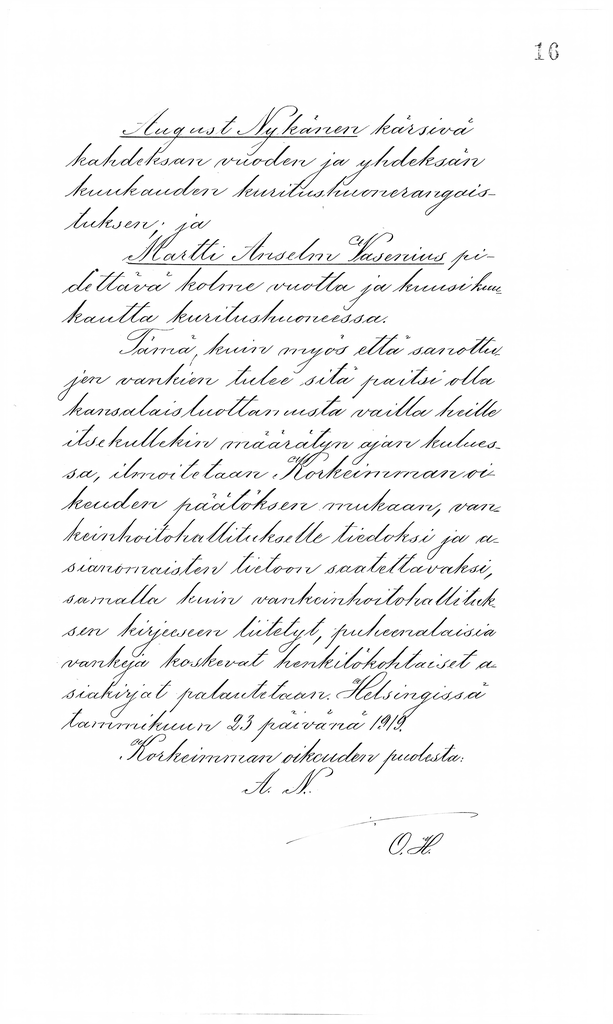 16
August Nykänen kärsivä
kahdeksan vuoden ja yhdeksän
kuukauden kuritushuonerangais-
tuksen; ja
Martti Anselm Vasenius pi-
dettävä kolme vuotta ja kuusi kuu-
kautta kuritushuoneessa.
Tämä, kuin myös että sanottu-
jen vankien tulee sitä paitsi olla
kansalaisluottamusta vailla heille
itsekullekin määrätyn ajan kulues-
sa, ilmoitetaan Korkeimman oi-
keuden päätöksen mukaan, van-
keinhoitohallitukselle tiedoksi ja a-
sianomaisten tietoon saatettavaksi,
samalla kuin vankeinhoitohallituk-
sen kirjeeseen liitetyt, puheenalaisia
vankeja koskevat henkilökohtaiset a-
siakirjat palautetaan. Helsingissä
tammikuun 23 päivänä 1919.
Korkeimman oikeuden puolesta:
A. N.
O. H.